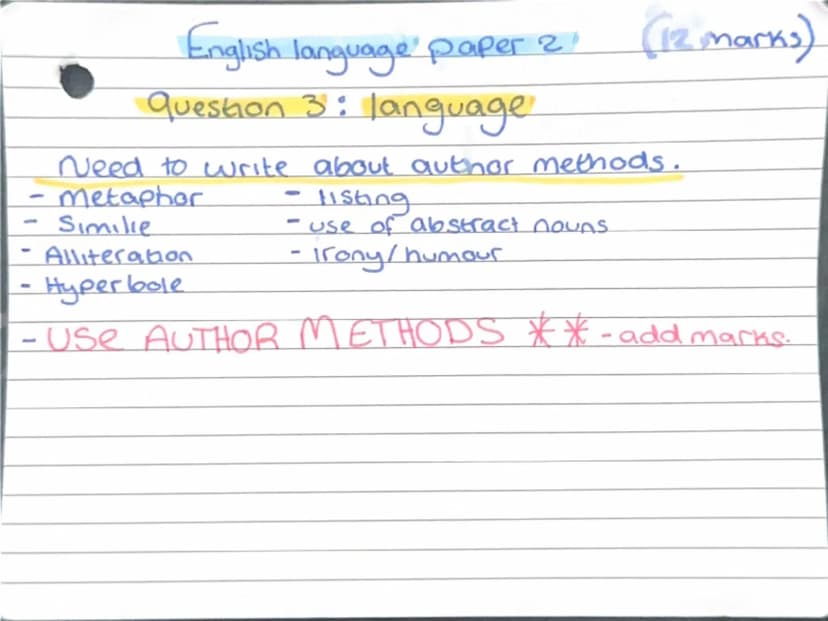 English language paper 2 (12 marks)
Question 3: language
Need to write about author methods.
- Metaphor - listing
- Similie - use of abstract nouns
- Alliteration - irony/humour
- Hyperbole
- USE AUTHOR METHODS ** - add marks.